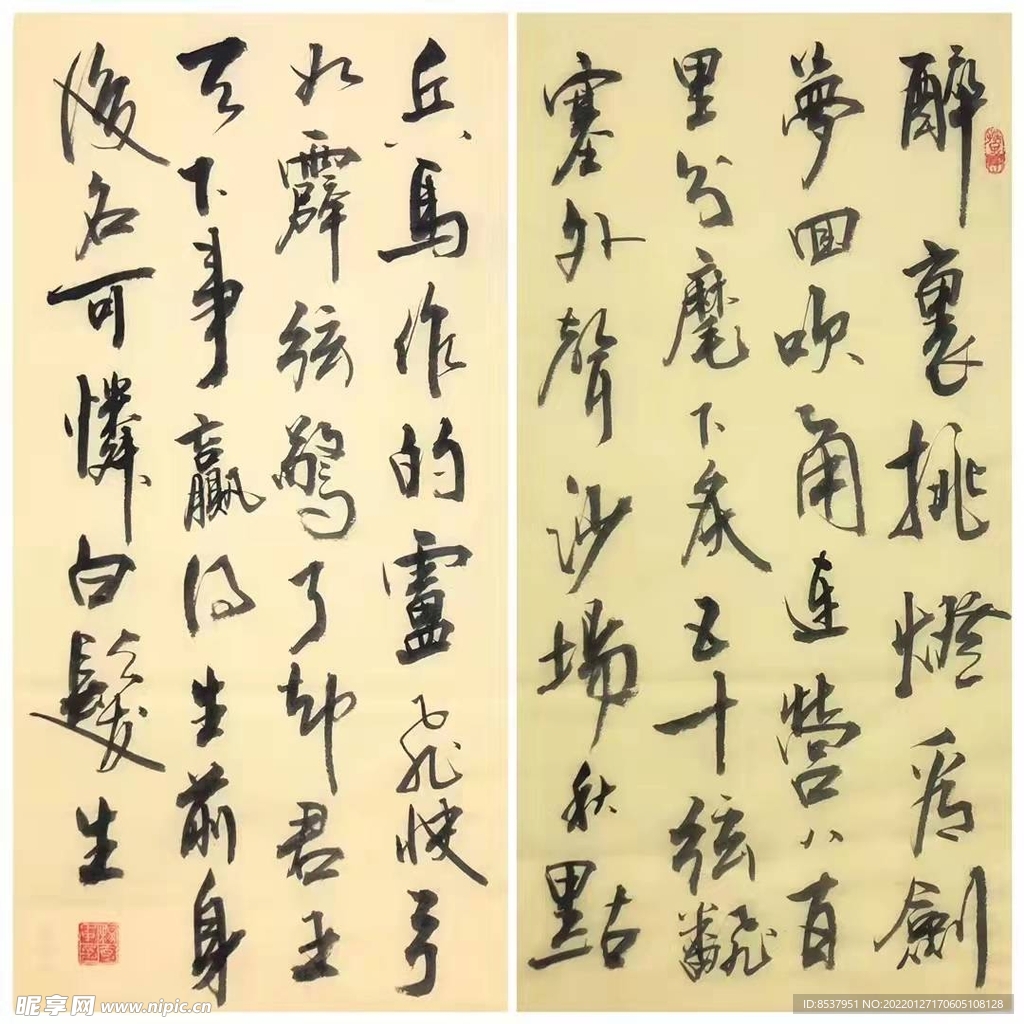 醉裏挑燈看劍
夢回吹角連營八百
里分麾下炙五十弦飜
塞外聲沙場秋點
兵馬作的盧飛快弓
如霹弦驚了却君王
天下事贏得生前身
後名可憐白髮生
昵享网 www.nipic.cn
ID:8537951 NO:20220127170605108128